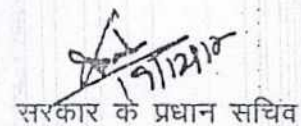 सरकार के प्रधान सचिव